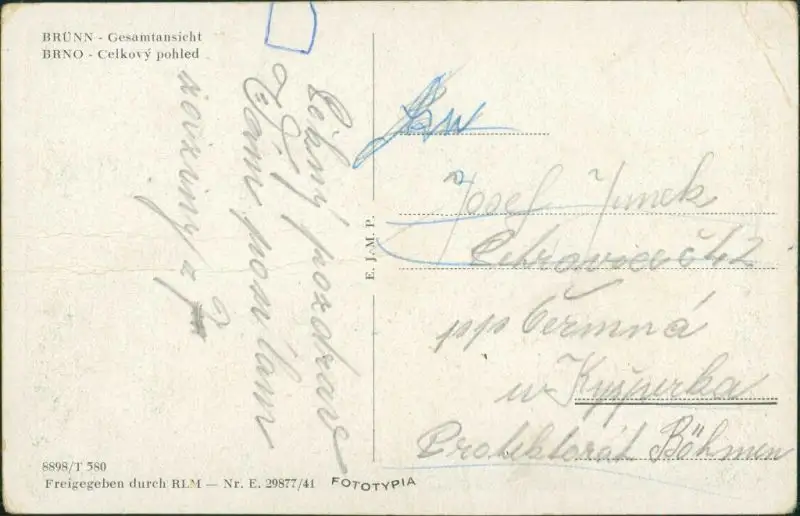 BRÜNN - Gesamtansicht
BRNO - Celkový pohled
pozdrav
Vám posílám
E. J. M. P.
Josef Junek
Petrovice č 42
pp Čermná
u Kyšperka
Protektorát Böhmen
8898/T 580
Freigegeben durch RLM — Nr. E. 29877/41
FOTOTYPIA